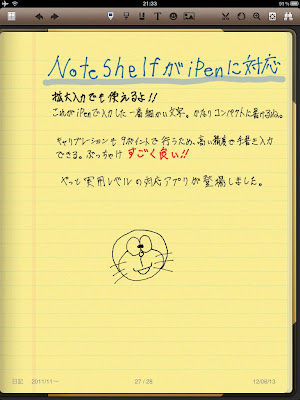 21:33
NoteShelfがiPenに対応
拡大入力でも使えるよ!!
これがiPenで入力した一番細かい文字。かなりコンパクトに書けるね。
キャリブレーションも9ポイントで行うため、高い精度で手書き入力
できる。ぶっちゃけ すごく良い!!
やっと実用レベルの対応アプリが登場しました。
日記 2011/11〜 27 / 28 12/06/13